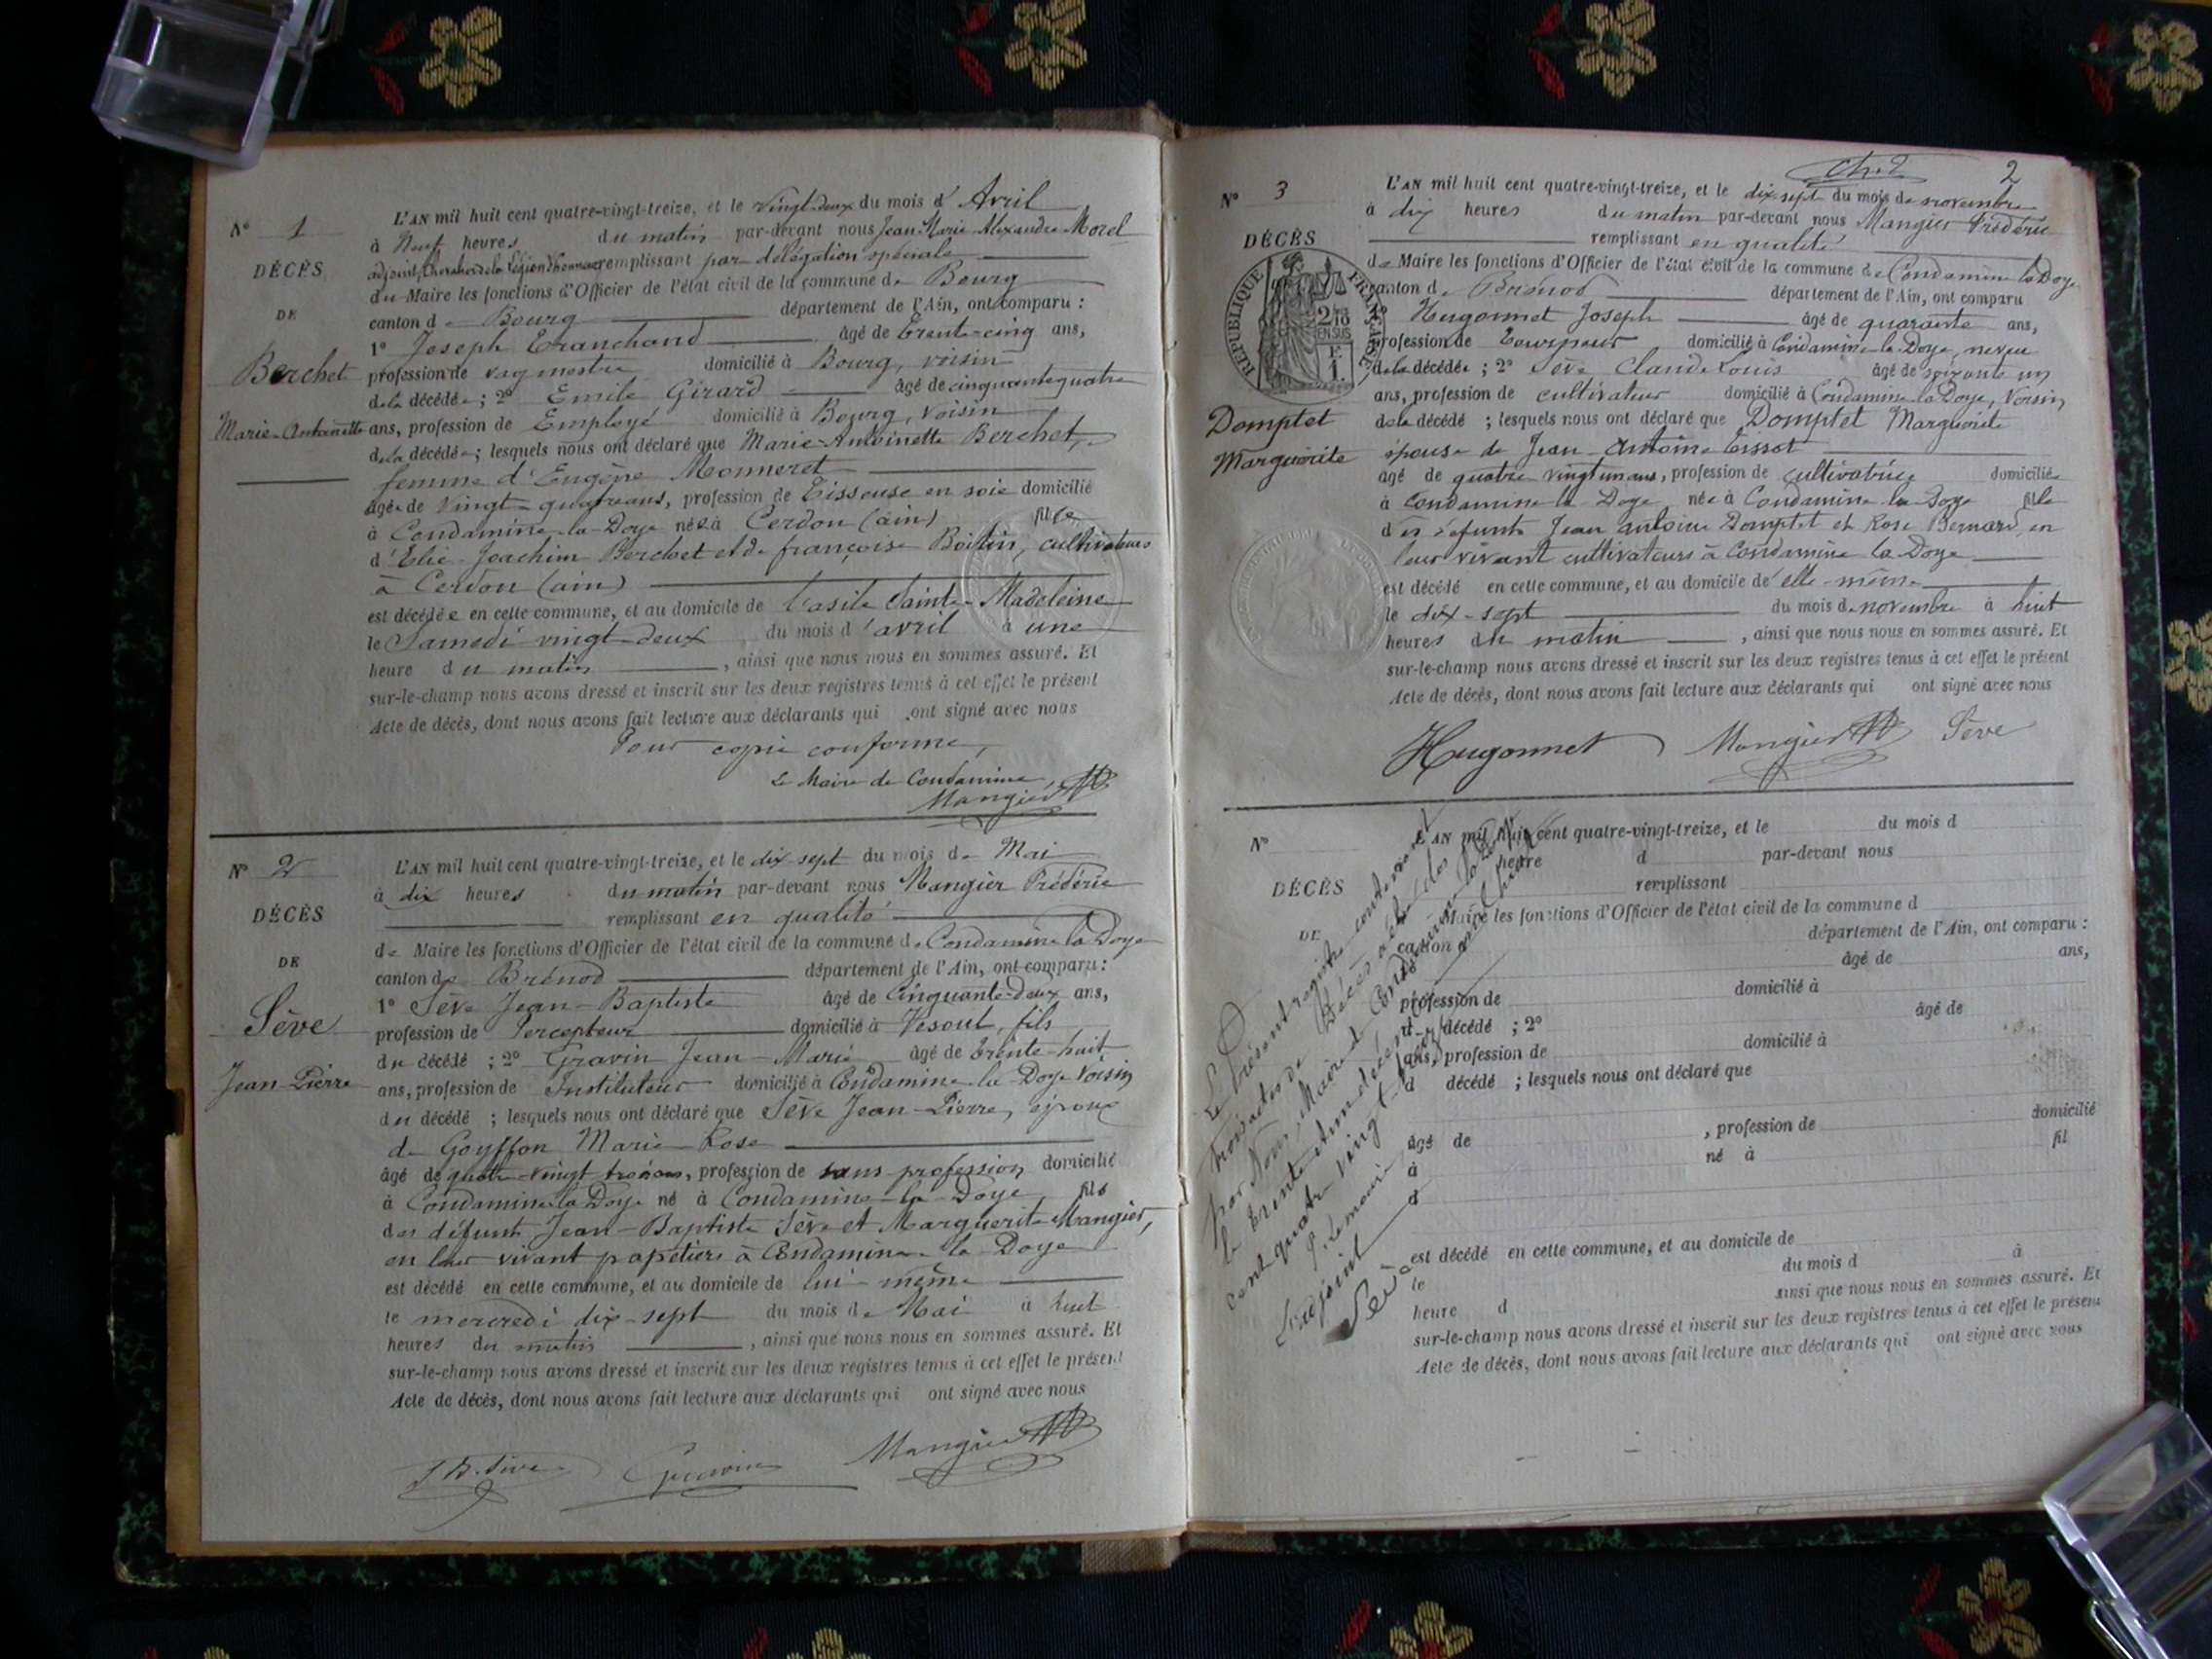 N° 1
DÉCÈS
DE
Berchet
Marie-Antoinette
L'AN mil huit cent quatre-vingt-treize, et le vingt-deux du mois d'Avril
à Neuf heures du matin par-devant nous Jean Marie Alexandre Morel
adjoint, Chevalier de la Légion d'honneur remplissant par délégation spéciale
du Maire les fonctions d'Officier de l'état civil de la commune de Bourg
canton de Bourg département de l'Ain, ont comparu :
1° Joseph Tranchand âgé de trente-cinq ans,
profession de vaguemestre domicilié à Bourg, voisin
de la décédée ; 2° Emile Girard âgé de cinquante quatre
ans, profession de Employé domicilié à Bourg, voisin
de la décédée ; lesquels nous ont déclaré que Marie-Antoinette Berchet,
femme d'Eugène Monneret
âgée de vingt-quatre ans, profession de Tisseuse en soie domicilié
à Condamine-la-Doye née à Cerdon (ain) fille
d'Elie-Joachim Berchet et de françoise Boitin, cultivateurs
à Cerdon (ain)
est décédée en cette commune, et au domicile de l'asile Sainte-Madeleine
le Samedi vingt-deux du mois d'avril à une
heure du matin , ainsi que nous nous en sommes assuré. Et
sur-le-champ nous avons dressé et inscrit sur les deux registres tenus à cet effet le présent
Acte de décès, dont nous avons fait lecture aux déclarants qui ont signé avec nous
Pour copie conforme,
Le Maire de Condamine,
Mangier
N° 2
DÉCÈS
DE
Sève
Jean-Pierre
L'AN mil huit cent quatre-vingt-treize, et le dix-sept du mois de Mai
à dix heures du matin par-devant nous Mangier Frédéric
remplissant en qualité
de Maire les fonctions d'Officier de l'état civil de la commune de Condamine la Doye
canton de Brénod département de l'Ain, ont comparu :
1° Sève Jean-Baptiste âgé de Cinquante-deux ans,
profession de Percepteur domicilié à Vesoul, fils
du décédé ; 2° Gravin Jean-Marie âgé de trente-huit
ans, profession de Instituteur domicilié à Condamine-la-Doye Voisin
du décédé ; lesquels nous ont déclaré que Sève Jean-Pierre, époux
de Goyffon Marie-Rose
âgé de quatre-vingt trois ans, profession de sans profession domicilié
à Condamine la Doye né à Condamine-la-Doye fils
des défunts Jean-Baptiste Sève et Marguerite Mangier,
en leur vivant papetiers à Condamine-la-Doye
est décédé en cette commune, et au domicile de lui-même
le mercredi dix-sept du mois de Mai à huit
heures du matin , ainsi que nous nous en sommes assuré. Et
sur-le-champ nous avons dressé et inscrit sur les deux registres tenus à cet effet le présent
Acte de décès, dont nous avons fait lecture aux déclarants qui ont signé avec nous
J B. Sève Gravin Mangier
2
N° 3
DÉCÈS
REPUBLIQUE FRANÇAISE
2/10 EN SUS
1 F.
Domptet
Marguerite
L'AN mil huit cent quatre-vingt-treize, et le dix-sept du mois de novembre
à dix heures du matin par-devant nous Mangier Frédéric
remplissant en qualité
de Maire les fonctions d'Officier de l'état civil de la commune de Condamine la Doye
canton de Brénod département de l'Ain, ont comparu
Hugonnet Joseph âgé de quarante ans,
profession de Tourneur domicilié à Condamine-la-Doye, neveu
de la décédée ; 2° Sève Claude Louis âgé de soixante un
ans, profession de cultivateur domicilié à Condamine la Doye, Voisin
de la décédé ; lesquels nous ont déclaré que Domptet Marguerite
épouse de Jean-Antoine Tissot
âgé de quatre vingt un ans, profession de cultivatrice domiciliée
à Condamine la Doye née à Condamine la Doye fille
des défunts Jean antoine Domptet et Rose Bernard, en
leur vivant cultivateurs à Condamine la Doye
est décédé en cette commune, et au domicile de elle-même
le dix-sept du mois de novembre à huit
heures du matin , ainsi que nous nous en sommes assuré. Et
sur-le-champ nous avons dressé et inscrit sur les deux registres tenus à cet effet le présent
Acte de décès, dont nous avons fait lecture aux déclarants qui ont signé avec nous
Hugonnet Mangier Sève
N°
DÉCÈS
DE
L'AN mil huit cent quatre-vingt-treize, et le du mois d
heure d par-devant nous
remplissant
Maire les fonctions d'Officier de l'état civil de la commune d
canton département de l'Ain, ont comparu :
âgé de ans,
profession de domicilié à
d décédé ; 2° âgé de
ans, profession de domicilié à
d décédé ; lesquels nous ont déclaré que
âgé de , profession de domicilié
à né à fil
d
est décédé en cette commune, et au domicile de
le du mois d à
heure d ainsi que nous nous en sommes assuré. Et
sur-le-champ nous avons dressé et inscrit sur les deux registres tenus à cet effet le présent
Acte de décès, dont nous avons fait lecture aux déclarants qui ont signé avec nous
Le présent registre contenant
trois actes de Décès a été clos
par Nous, Maire de Condamine la Doye
le trente et un décembre mil huit
cent quatre-vingt-treize
P. Le maire
L'adjoint
Sève